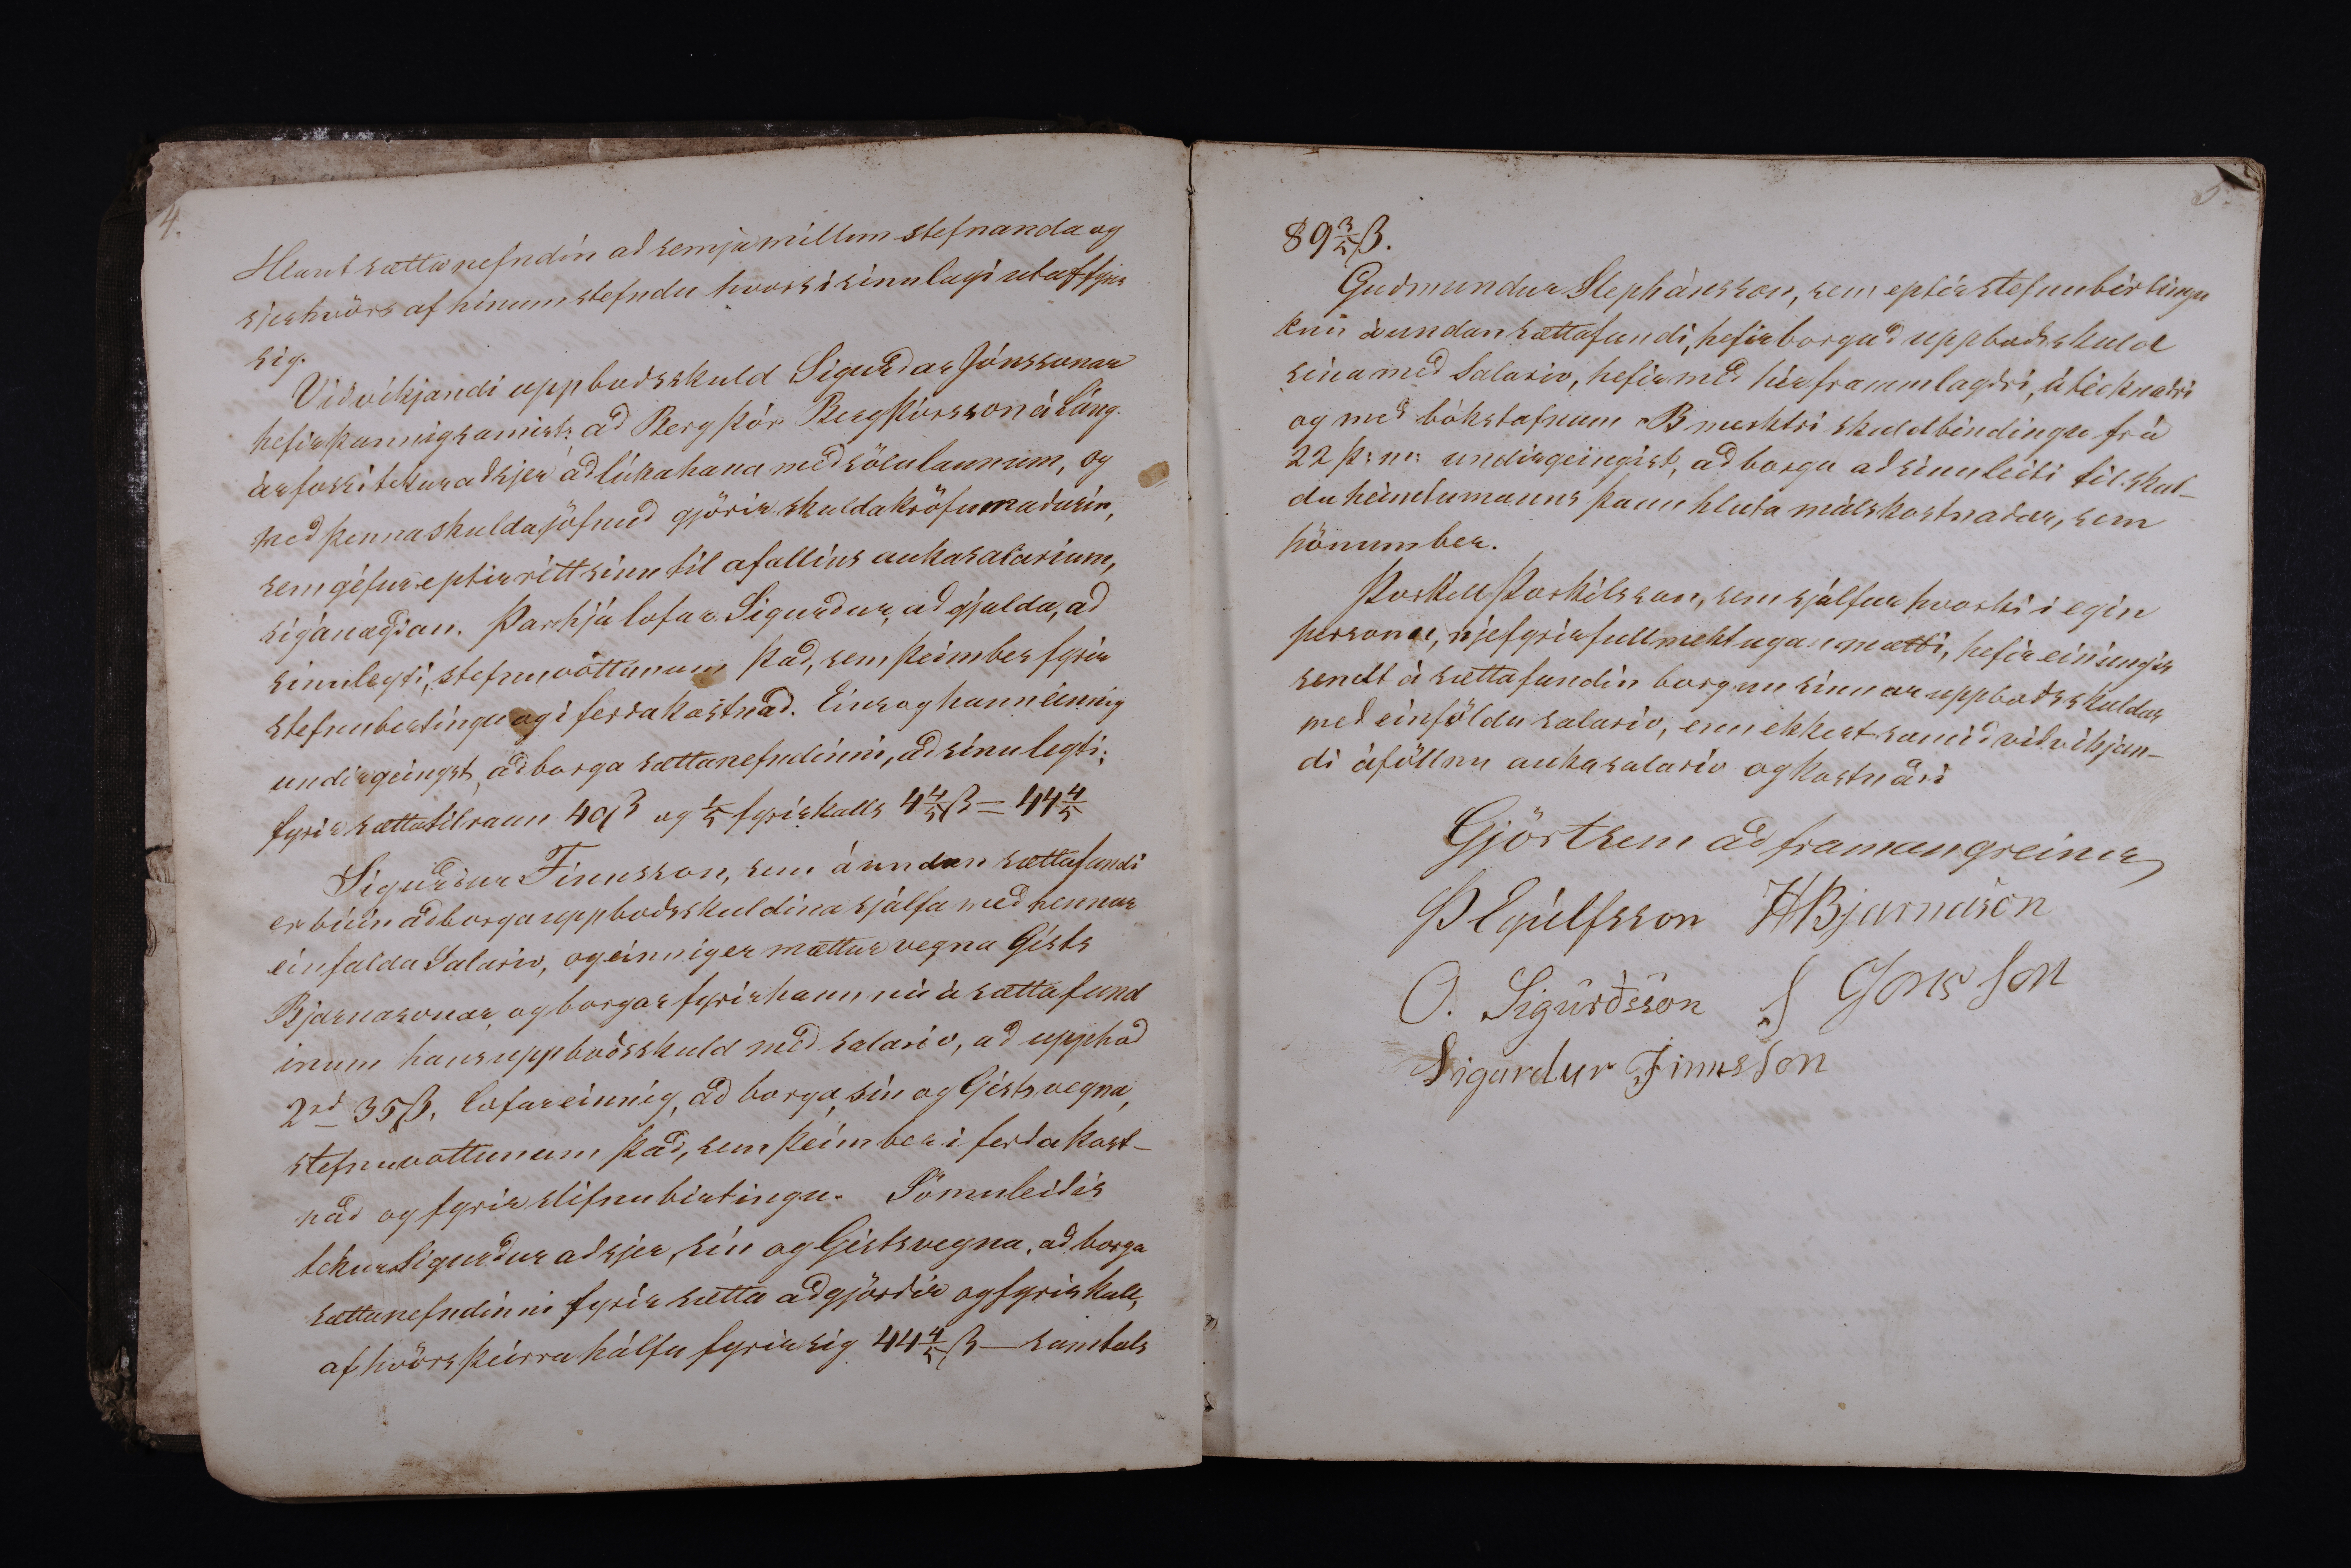 4.
Hlaut sættanefndin að semja millum stefnanda og
sjerhvörs af hinum stefndu hvors í sinulagi útaf fyrir
sig.
Viðvikjandi uppboðsskuld Sigurðar Jónssonar
hefir þannig samist: að Bergþór Bergþórsson á Láng-
árfossi tekur að sjer að lúka hana með sölulaunum, og
með þenna skuldajöfnuð gjörir skuldakröfumaðurin,
sem géfur eptir rétt sinn til afallins aukasalarium,
sig ánægðan. Þarhjá lofar Sigurður, að gjalda, að
sinuleyti, stefnuvottunum það, sem þeim ber fyrir
stefnubirtingu og í ferðakostnað. Eins og hann einnig
undirgeingst, að borga sættanefndinni, að sínu leyti,
fyrir sættatilraun 40 ß og 1/5 fyrirkalls 4 4/5 ß = 44 4/5
Sigurður Finnsson, sem á undan sættafundi
er búin að borga uppboðsskuldina sjálfa með hennar
einfalda Salario, og einnig er mættur vegna Gísts
Bjarnasonar, og borgar fyrir hann nú á sættafund
inum hans uppboðsskuld með salario, að upphæð
2rd 35 ß, lofar einnig, að borga, sín og Gísts vegna,
stefnuvottunum það, sem þeim ber í ferðakost-
nað og fyrir stéfnubirtingu. Sömuleiðis
tekur Sigurður að sjer, sín og Gísts vegna, að borga
sættanefndinni fyrir sætta aðgjörðir og fyrirkall,
af hvörs þeirra hálfu fyrir sig 44 4/5 ß — samtals
5.
89 3/5 ß.
Guðmundur Stephánsson, sem eptir stefnubirtingu
enn á undan sættafundi, hefir borgað uppboðsskuld
sína með Salario, hefir með hér frammlagðri, áteiknaðri
og með bókstafnum B merktri skuldbindingu frá
22 þ: m: undirgeingist, að borga að sinu leiti til skul-
duheimtumanns þann hluta málskostnaðar, sem
hönum ber.
Þorkell Þorkélsson, sem sjálfur hvorki í egin
persónu, nje fyrir fullmektugan mætti, hefir einúngis
sendt á sættafundin borgun sinnar uppboðsskuldar
með einföldu salario, enn ekkert samið viðvikjan-
di áföllnu aukasalario og kostnaði
Gjört sem að framangreinir
Þ Eyúlfsson H Bjarnason
O. Sigurðsson S Jonsson
Sigurdur Finnsson